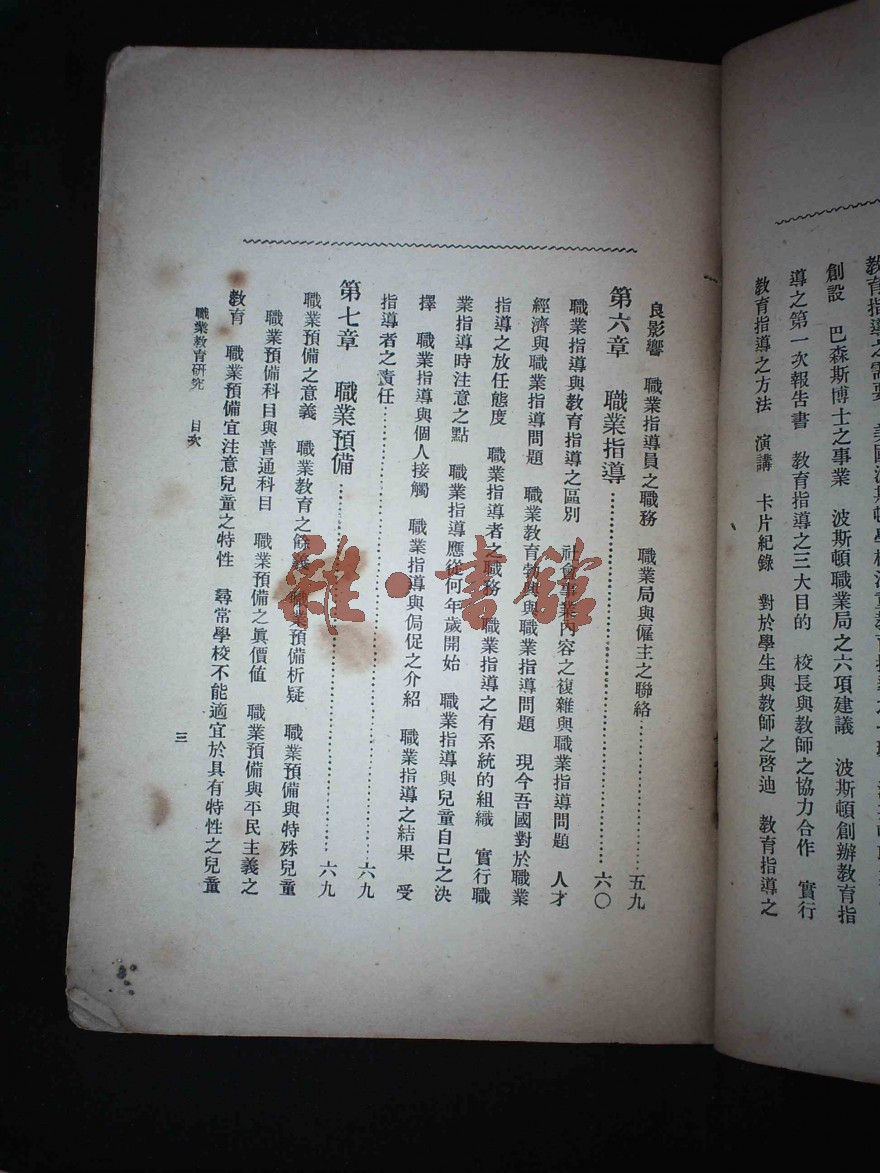 創設　巴森斯博士之事業　波斯頓職業局之六項建議　波斯頓創辦教育指
導之第一次報告書　教育指導之三大目的　校長與教師之協力合作　實行
教育指導之方法　演講　卡片紀錄　對於學生與教師之啓迪　教育指導之
良影響　職業指導員之職務　職業局與僱主之聯絡……五九
第六章　職業指導……六〇
職業指導與教育指導之區別　社會事業內容之複雜與職業指導問題　人才
經濟與職業指導問題　職業教育勃興與職業指導問題　現今吾國對於職業
指導之放任態度　職業指導者之職務　職業指導之有系統的組織　實行職
業指導時注意之點　職業指導應從何年歲開始　職業指導與兒童自己之決
擇　職業指導與個人接觸　職業指導與侷促之介紹　職業指導之結果　受
指導者之責任……六九
第七章　職業預備……六九
職業預備之意義　職業教育之餘義　職業預備析疑　職業預備與特殊兒童
職業預備科目與普通科目　職業預備之眞價值　職業預備與平民主義之
教育　職業預備宜注意兒童之特性　尋常學校不能適宜於具有特性之兒童
職業教育研究　目次
三
雜·書館